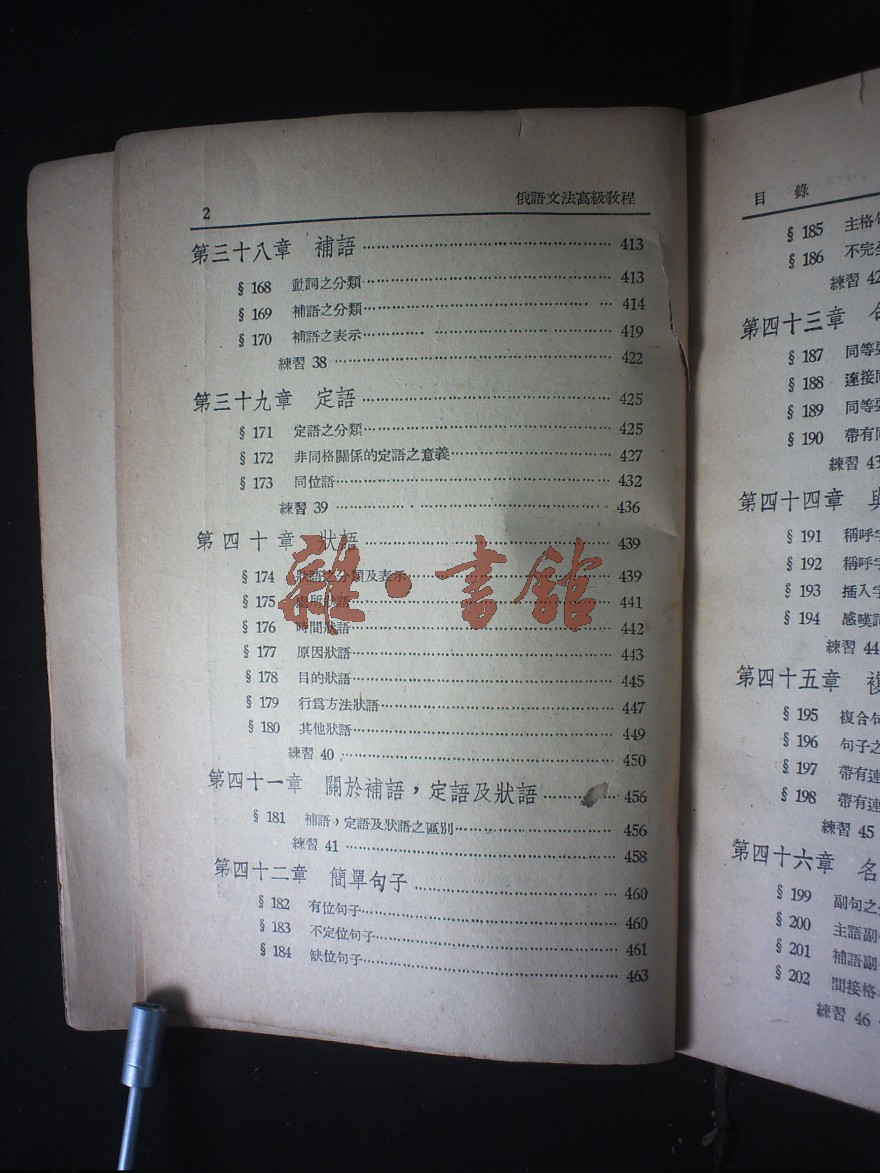 2 俄語文法高級教程
第三十八章 補語 413
§ 168 動詞之分類 413
§ 169 補語之分類 414
§ 170 補語之表示 419
練習 38 422
第三十九章 定語 425
§ 171 定語之分類 425
§ 172 非同格關係的定語之意義 427
§ 173 同位語 432
練習 39 436
第四十章 狀語 439
§ 174 狀語之分類及表示 439
§ 175 處所狀語 441
§ 176 時間狀語 442
§ 177 原因狀語 443
§ 178 目的狀語 445
§ 179 行爲方法狀語 447
§ 180 其他狀語 449
練習 40 450
第四十一章 關於補語，定語及狀語 456
§ 181 補語，定語及狀語之區別 456
練習 41 458
第四十二章 簡單句子 460
§ 182 有位句子 460
§ 183 不定位句子 461
§ 184 缺位句子 463
雜·書館
目錄
§ 185 主格
§ 186 不完
練習 42
第四十三章
§ 187 同等
§ 188 連接
§ 189 同等
§ 190 帶有
練習 43
第四十四章
§ 191 稱呼
§ 192 稱呼
§ 193 插入
§ 194 感嘆
練習 44
第四十五章 複
§ 195 複合
§ 196 句子之
§ 197 帶有連
§ 198 帶有連
練習 45
第四十六章 名
§ 199 副句之
§ 200 主語副
§ 201 補語副
§ 202 間接格
練習 46